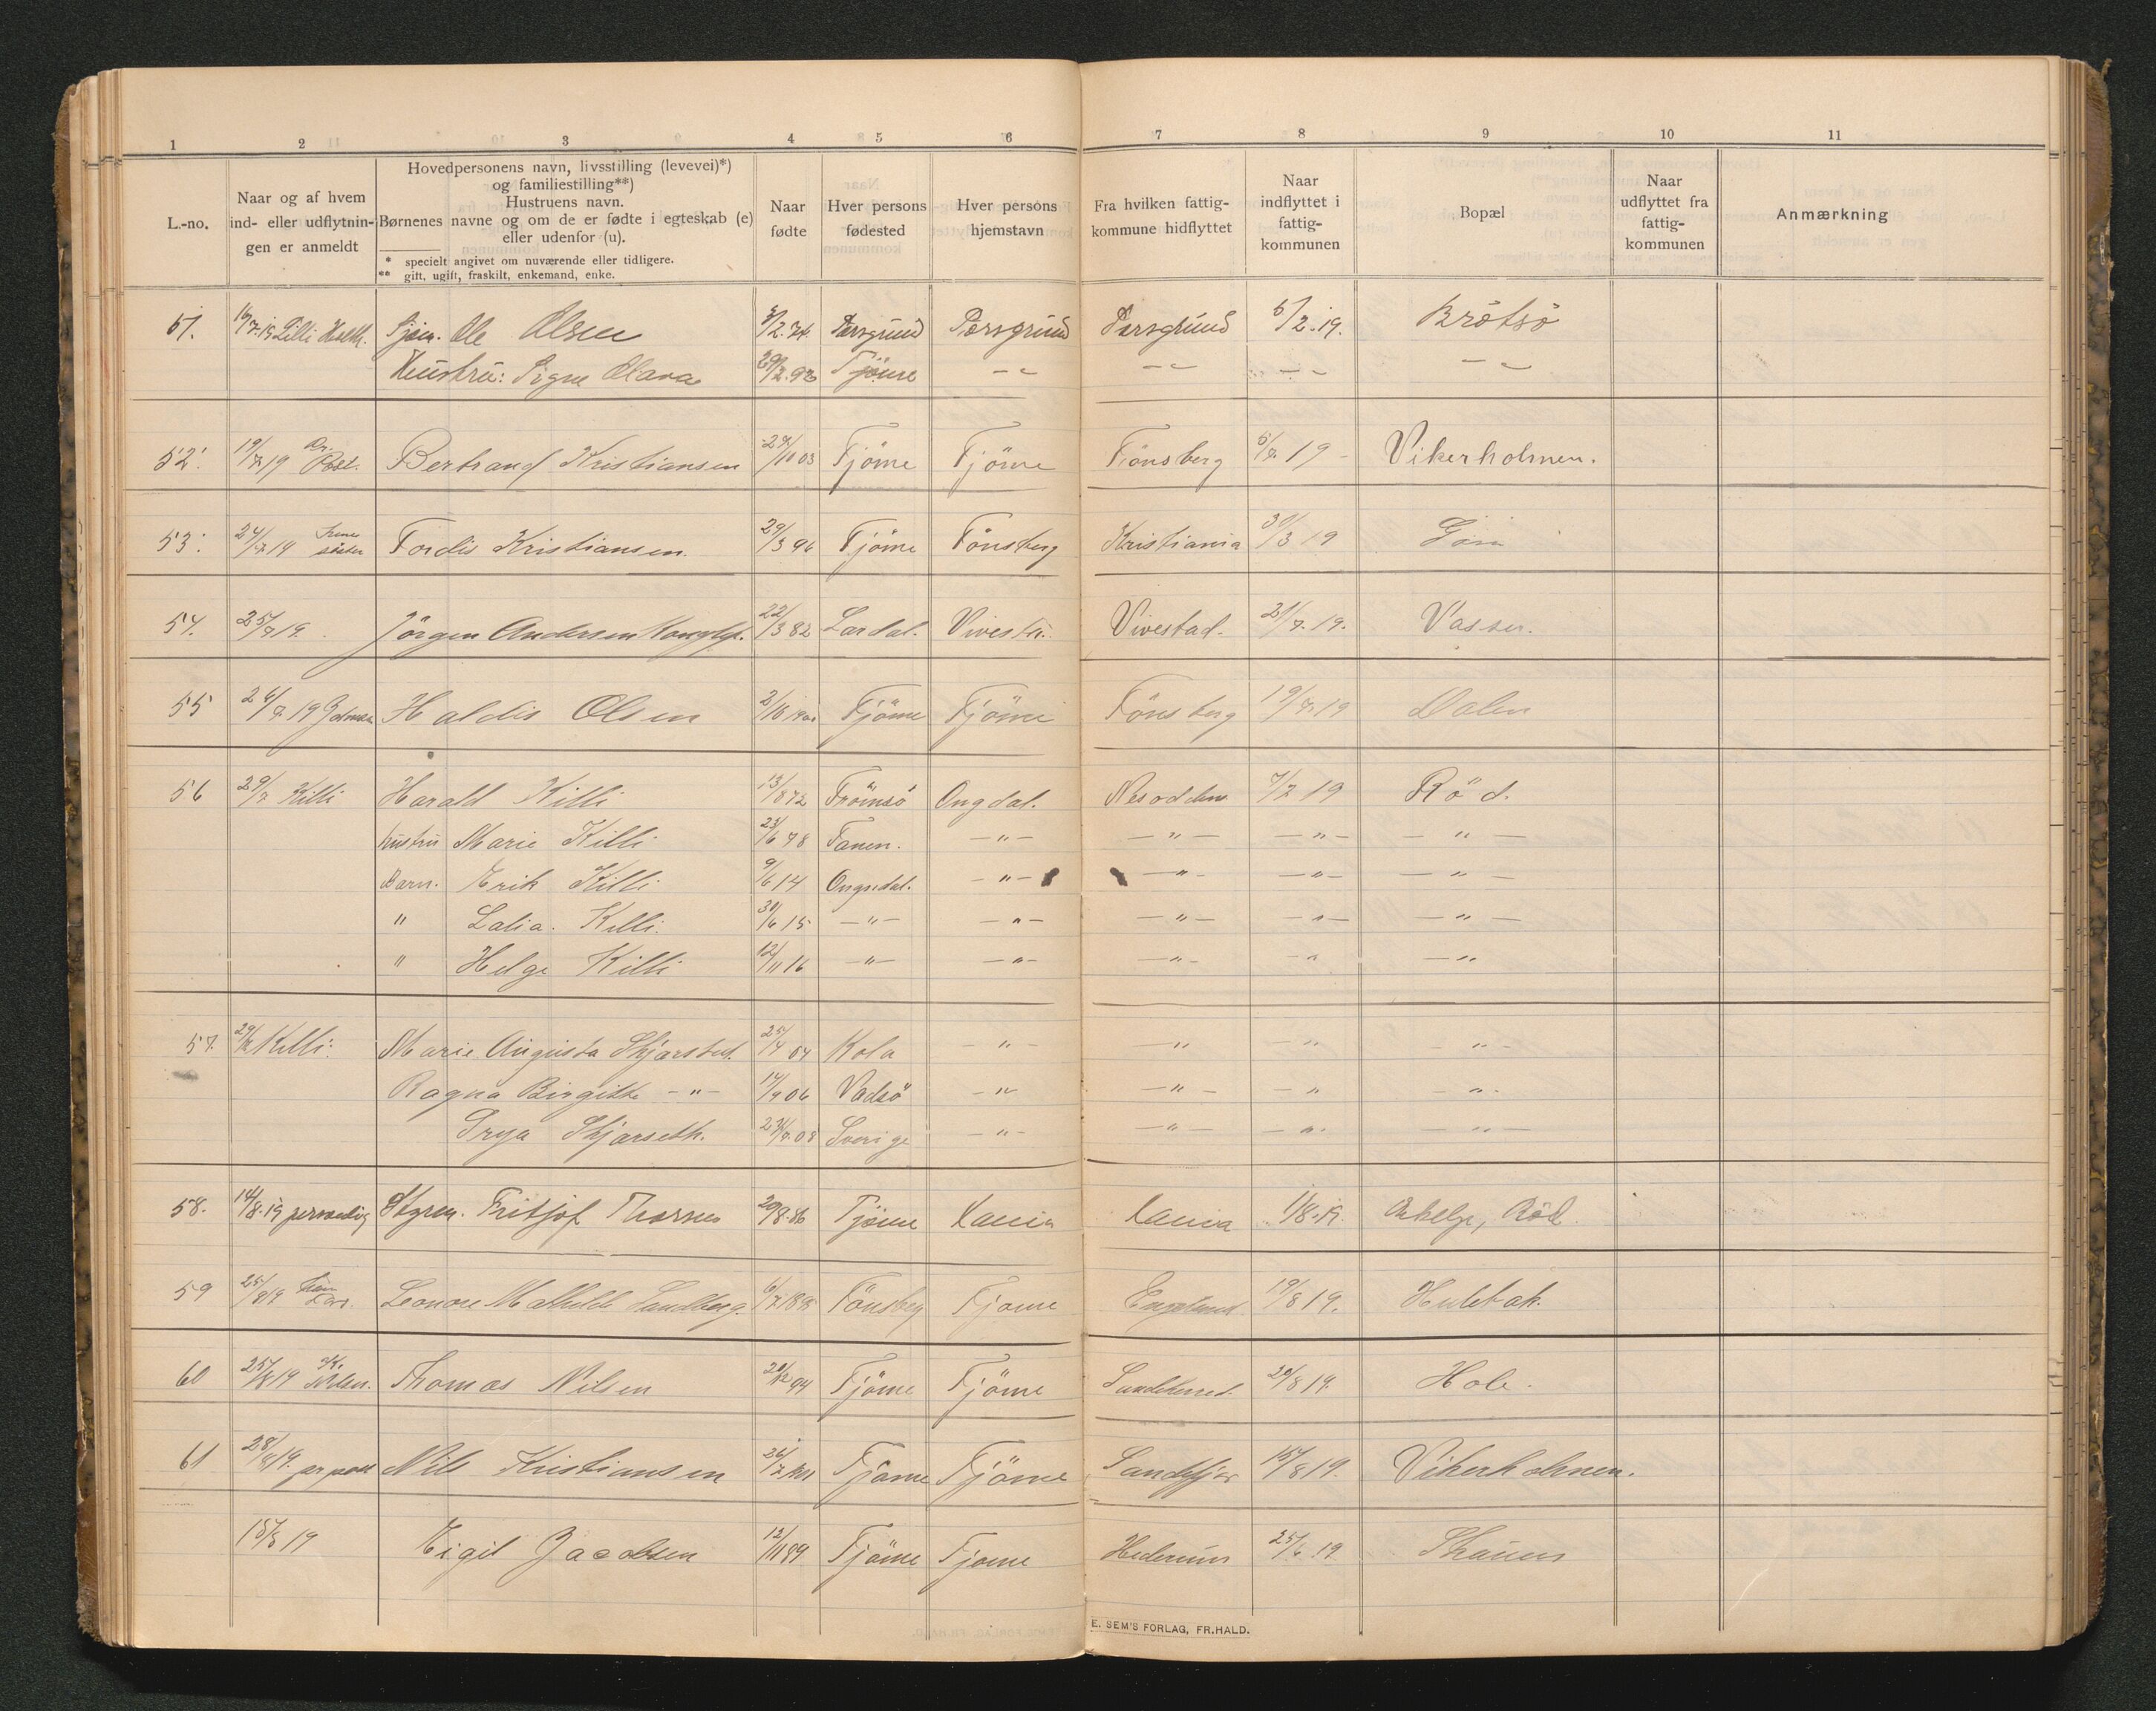 1 2 3 4 5 6 7 8 9 10 11
L.-no.
Naar og af hvem
ind- eller udflytnin-
gen er anmeldt
Hovedpersonens navn, livsstilling (levevei)*)
og familiestilling**)
Hustruens navn.
Børnenes navne og om de er fødte i egteskab (e)
eller udenfor (u).
* specielt angivet om nuværende eller tidligere.
** gift, ugift, fraskilt, enkemand, enke.
Naar
fødte
Hver persons
fødested
Hver persons
hjemstavn
Fra hvilken fattig-
kommune hidflyttet
Naar
indflyttet i
fattig-
kommunen
Bopæl
Naar
udflyttet fra
fattig-
kommunen
Anmærkning
51. Ole Olsen Porsgrund Porsgrund Porsgrund 5/2.19. Brötsö
Hustru: Signe Olava Tjöme -〃- -〃- -〃- -〃-
52. 19/7 19 Bertrand Kristiansen 29/10 03 Tjöme Tjöme Tönsberg 5/7 19 - Vikerholmen.
53. 24/7 19 Tordis Kristiansen. 29/3 96 Tjöme Tönsberg Kristiania 30/3 19
54. 25/7 19. Jörgen Andersen 22/3 82 Lardal. Vivestad. 21/7. 19. Vasser.
55 26/7 19 Haldis Olsen Tjöme Tjöme Tönsberg 19/7 19 Dalen
56 29/7 Killi Harald Killi 13/8 72 Tromsö Ongdal. Nesodden 7/7 19 Röd.
hustru Marie Killi 23/6 78 Fanen. -〃- -〃- -〃- -〃-
Barn. Erik Killi 9/6 14 Ongndal. -〃- -〃- -〃- -〃-
〃 Lalia. Killi. 30/6 15 -〃- -〃- -〃- -〃- -〃-
〃 Helge Killi 12/11 16 -〃- -〃- -〃- -〃- -〃-
57. 29/7 Killi. Marie Augusta 25/4 04 Kola -〃- -〃- -〃- -〃-
Ragna Birgitte -〃- 14/9 06 Vadsö -〃- -〃- -〃- -〃-
Skjarseth. 08 Sverige -〃- -〃- -〃- -〃-
58. 14/8.19 personlig Styrm. Fritjof 20/8.86 Tjöme Kania Kania 1/8.19. Röd
59 25/8 19 Leonore Mathilde Sandberg. Tönsberg Tjöme England 19/8 19. Hulebak.
60 25/8 19 Thomas Nilsen Tjöme Tjöme Sandeherred. 20/8 19. Hole.
61 28/8 19. pr post Nils Kristiansen Tjöme Tjöme 15/8 19. Vikerholmen.
15/8 19 Eigil Jacobsen 12/11 89 Tjöme Tjöme 25/6 19
E. SEM'S FORLAG, FR.HALD.